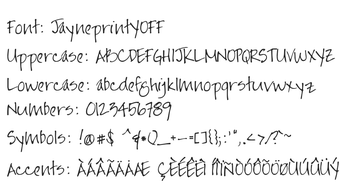 Font: JayneprintYOFF
Uppercase: ABCDEFGHIJKLMNOPQRSTUVWXYZ
Lowercase: abcdefghijklmnopqrstuvwxyz
Numbers: 0123456789
Symbols: !@#$ ^&*()_+-=[]{};:'",.<>/?~
Accents: ÀÁÂÃÄÅÆ ÇÈÉÊËÌÍÎÏÑÒÓÔÕÖØÙÚÛÜÝ